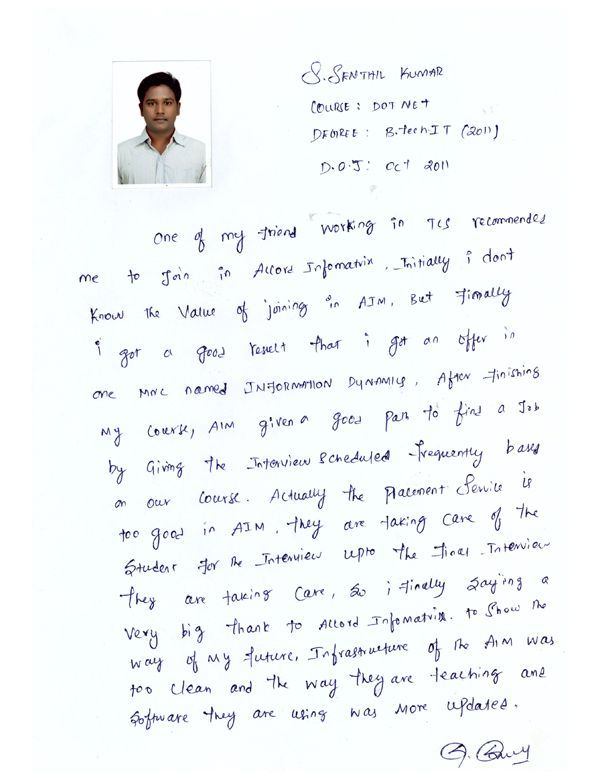 S. SENTHIL KUMAR
COURSE : DOT NET
DEGREE : B.Tech IT (2011)
D.O.J : Oct 2011
One of my friend working in TCS recommended
me to Join in Accord Infomatrix. Initially i dont
know the Value of joining in AIM, But Finally
i got a good result that i got an offer in
one MNC named INFORMATION DYNAMICS. After finishing
My Course, AIM given a good path to find a Job
by Giving the Interview scheduled frequently based
on our Course. Actually the Placement Service is
too good in AIM. They are taking care of the
Student for the Interview upto the Final Interview
they are taking care, So i finally saying a
Very big thank to Accord Infomatrix. to Show the
way of My future, Infrastructure of the AIM was
too clean and the way they are teaching and
Software they are using was More updated.